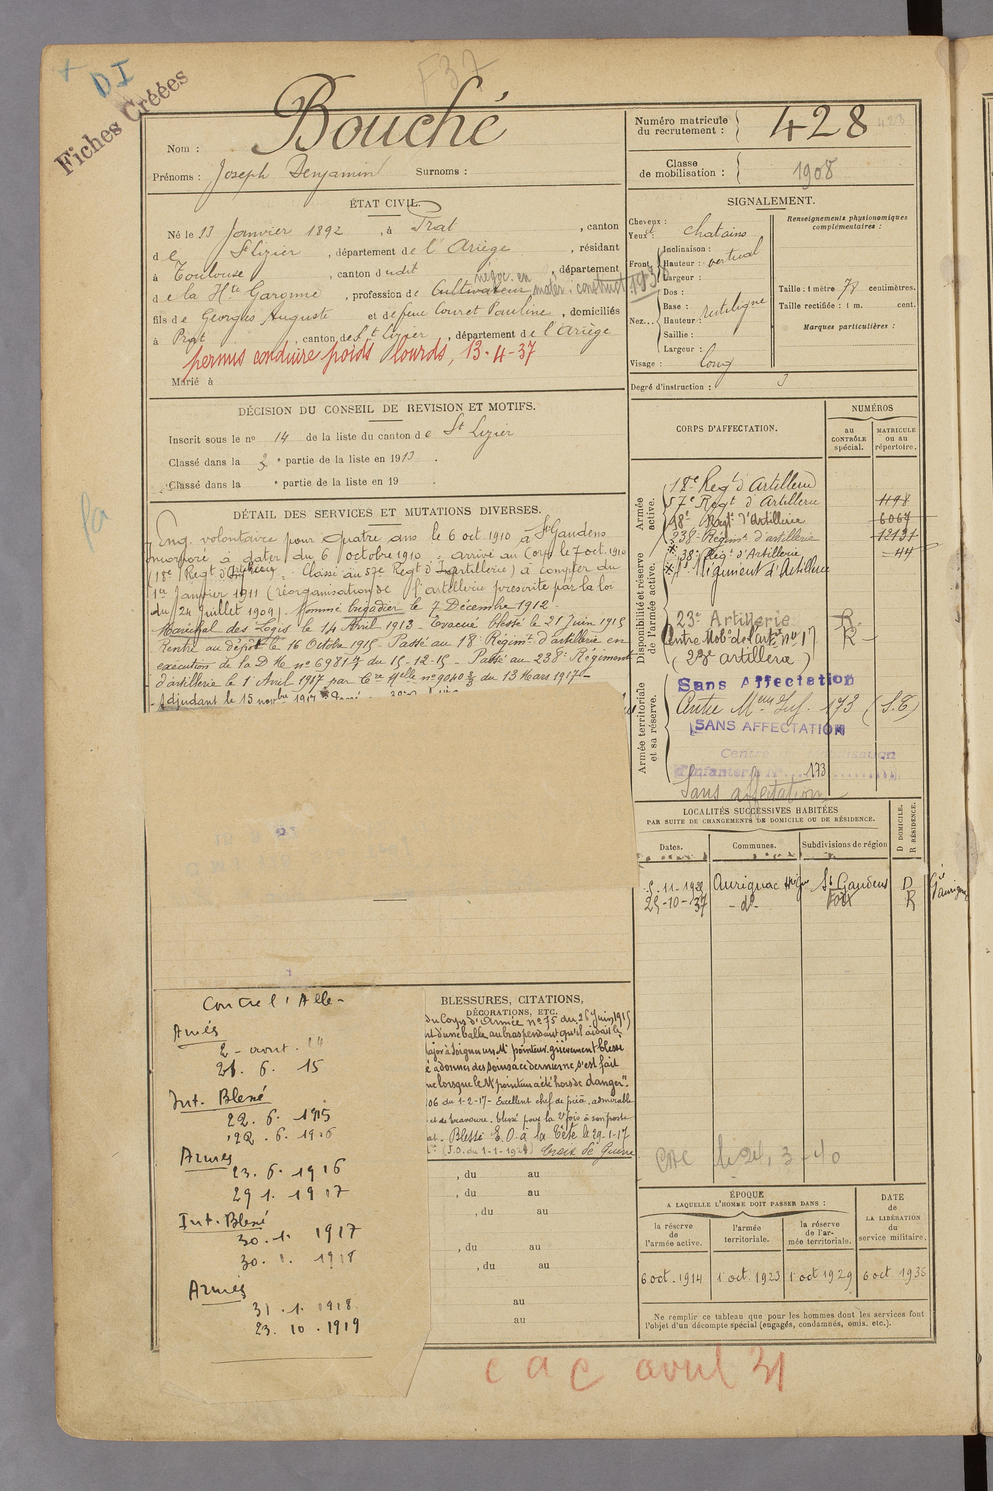 DI
Fiches Créées
F37
Nom : Bouché
Prénoms : Joseph Benjamin Surnoms :
Numéro matricule du recrutement : 428 423
Classe de mobilisation : 1908
ÉTAT CIVIL.
Né le 13 Janvier 1892, à Prat, canton
de St Lizier, département de l'Ariège, résidant
à Toulouse, canton dudit, département
de la Hte Garonne, profession de Cultivateur négoc. en matér. construct 1938
fils de Georges Auguste et de feue Couret Pauline, domiciliés
à Prat, canton de St Lizier, département de l'Ariège
permis conduire poids lourds, 13-4-37
Marié à
DÉCISION DU CONSEIL DE REVISION ET MOTIFS.
Inscrit sous le no 14 de la liste du canton de St Lizier
Classé dans la 3 e partie de la liste en 1913.
Classé dans la e partie de la liste en 19 .
DÉTAIL DES SERVICES ET MUTATIONS DIVERSES.
Eng. volontaire pour quatre ans le 6 oct. 1910 à St Gaudens
incorporé à dater du 6 octobre 1910 - arrivé au Corps le 7 oct. 1910
(18e Régt d'Artillerie). Classé au 57e Régt d'Artillerie) à compter du
1er Janvier 1911 (réorganisation de l'artillerie prescrite par la loi
du 24 Juillet 1909). Nommé brigadier le 7 Décembre 1912.
Maréchal des Logis le 14 Avril 1913. Evacué blessé le 21 Juin 1915
Rentré au dépôt le 16 Octobre 1915 - Passé au 18e Régimt d'artillerie en
exécution de la D M no 69817 du 15-12-15 - Passé au 238e Régiment
d'artillerie le 1 Avril 1917 par Cre Melle no 9040 3/3 du 13 Mars 1917 -
Adjudant le 15 novbre 1917
SIGNALEMENT.
Cheveux : chatains
Yeux :
Front. Inclinaison :
Hauteur : vertical
Largeur :
Nez... Dos :
Base :
Hauteur : rectiligne
Saillie :
Largeur :
Visage : long
Renseignements physionomiques complémentaires :
Taille : 1 mètre 78 centimètres.
Taille rectifiée : 1 m. cent.
Marques particulières :
Degré d'instruction : 3
CORPS D'AFFECTATION.
NUMÉROS
au CONTRÔLE spécial.
MATRICULE ou au répertoire.
Armée active.
18e Régt d'Artillerie
57e Régt d'Artillerie 1198
18e Régt d'Artillerie 6067
238e Régimt d'artillerie 12131
38e Régt d'Artillerie 44
Régiment d'Artillerie
Disponibilité et réserve de l'armée active.
23e Artillerie R
Centre Mobon de l'artie no 17 R
(23e artillerie)
Armée territoriale et sa réserve.
Sans Affectation
Centre Mem Inf. 173 (S.T)
SANS AFFECTATION
Centre
d'infanterie N° 173
Sans affectation
LOCALITÉS SUCCESSIVES HABITÉES
PAR SUITE DE CHANGEMENTS DE DOMICILE OU DE RÉSIDENCE.
Dates. Communes. Subdivisions de région D DOMICILE. R RÉSIDENCE.
5-11-1929 Aurignac Hte Gne St Gaudens D
25-10-37 - do - Foix R
CAC le 24, 3-40
BLESSURES, CITATIONS, DÉCORATIONS, ETC.
du Corps d'Armée no 75 du 25 Juin 1915
nt d'une balle au bras pendant qu'il aidait le
ajor à soigner un Mr pointeur grièvement blessé
é a donner des soins à ce dernier ne s'est fait
ue lorsque le Mr pointeur a été hors de danger".
106 du 1-2-17 - Excellent chef de pièce, admirable
et de bravoure. blessé pour la 2e fois à son poste
at. Blessé E. O. à la tête le 29-1-17
(J.O. du 1-1-1924) Croix de Guerre
, du au
, du au
, du au
, du au
, du au
au
au
Contre l'Alle-
Armées
2 - aout. 14
21. 6. 15
Int. Blessé
22. 6. 1915
22. 6. 1916
Armées
23. 6. 1916
29 1. 1917
Int. Blessé
30. 1. 1917
30. 1. 1918
Armées
31. 1. 1918
23. 10. 1919
ÉPOQUE
A LAQUELLE L'HOMME DOIT PASSER DANS :
la réserve de l'armée active. l'armée territoriale. la réserve de l'armée territoriale.
DATE de LA LIBÉRATION du service militaire.
6 oct. 1914 1 oct. 1923 1 oct 1929 6 oct 1936
Ne remplir ce tableau que pour les hommes dont les services font
l'objet d'un décompte spécial (engagés, condamnés, omis, etc.).
cac avril 31